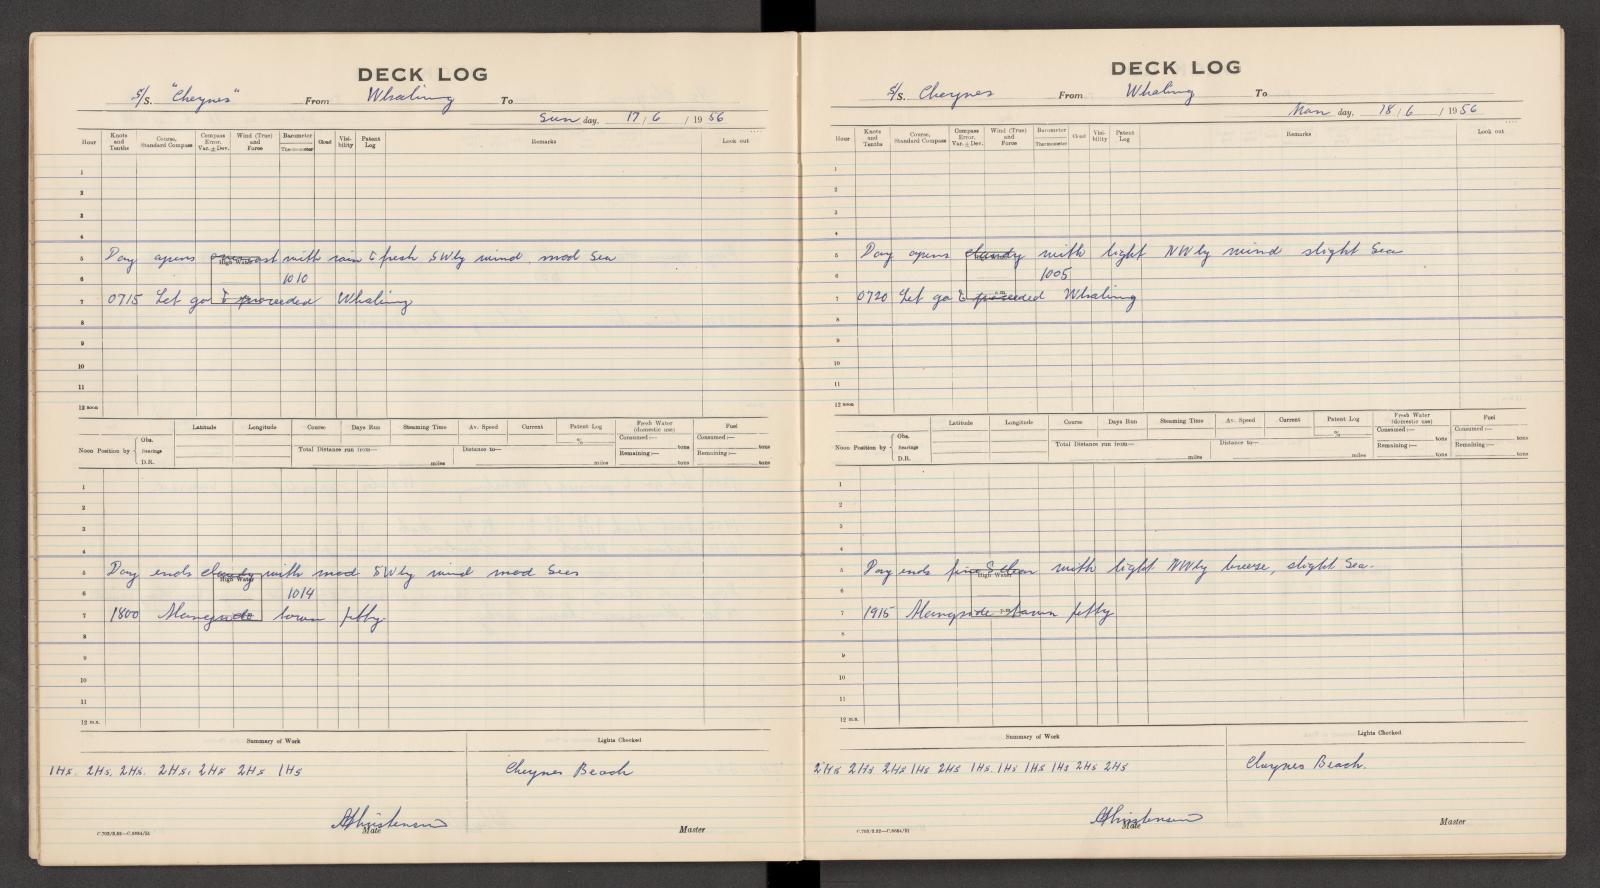 DECK LOG
S/S. "Cheynes" From Whaling To
Sun day, 17 / 6 / 19 56
Hour Knots and Tenths Course, Standard Compass Compass Error. Var. ± Dev. Wind (True) and Force Barometer Thermometer Cloud Visibility Patent Log Remarks Look out
1
2
3
4
5 Day opens overcast with rain & fresh SWly wind. mod Sea
High Water
6 1010
7 0715 Let go & proceeded Whaling
8
9
10
11
12 noon
Latitude Longitude Course Days Run Steaming Time Av. Speed Current Patent Log Fresh Water (domestic use) Fuel
% Consumed :— tons Consumed :— tons
Noon Position by { Obs. Bearings D.R. Total Distance run from— miles Distance to— miles Remaining :— tons Remaining :— tons
1
2
3
4
5 Day ends cloudy with mod SWly wind mod Seas
High Water
6 1014
7 1800 Alongside town jetty
8
9
10
11
12 m.n.
Summary of Work Lights Checked
1Hs. 2Hs. 2Hs. 2Hs. 2Hs 2Hs 1Hs Cheynes Beach
AChristensen
C.702/2.52—C.8684/51 Mate Master
DECK LOG
S/S. Cheynes From Whaling To
Mon day, 18 / 6 / 19 56
Hour Knots and Tenths Course, Standard Compass Compass Error. Var. ± Dev. Wind (True) and Force Barometer Thermometer Cloud Visibility Patent Log Remarks Look out
1
2
3
4
5 Day opens cloudy with light NWly wind slight Sea
6 1005
7 0720 Let go & proceeded Whaling
a.m.
8
9
10
11
12 noon
Latitude Longitude Course Days Run Steaming Time Av. Speed Current Patent Log Fresh Water (domestic use) Fuel
% Consumed :— tons Consumed :— tons
Noon Position by { Obs. Bearings D.R. Total Distance run from— miles Distance to— Remaining :— tons Remaining :— tons
1
2
3
4
5 Day ends fine & clear with light NWly breeze, slight Sea.
High Water
6
7 1915 Alongside town jetty
p.m.
8
9
10
11
12 m.n.
Summary of Work Lights Checked
2Hs 2Hs 2Hs 1Hs 2Hs 1Hs. 1Hs 1Hs 1Hs 2Hs 2Hs Cheynes Beach.
AChristensen
C.702/2.52—C.8684/51 Mate Master